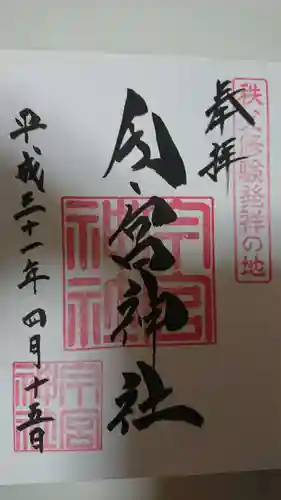 秩父修験発祥の地
奉拝
今宮神社
今宮神社
平成三十一年四月十五日
今宮神社